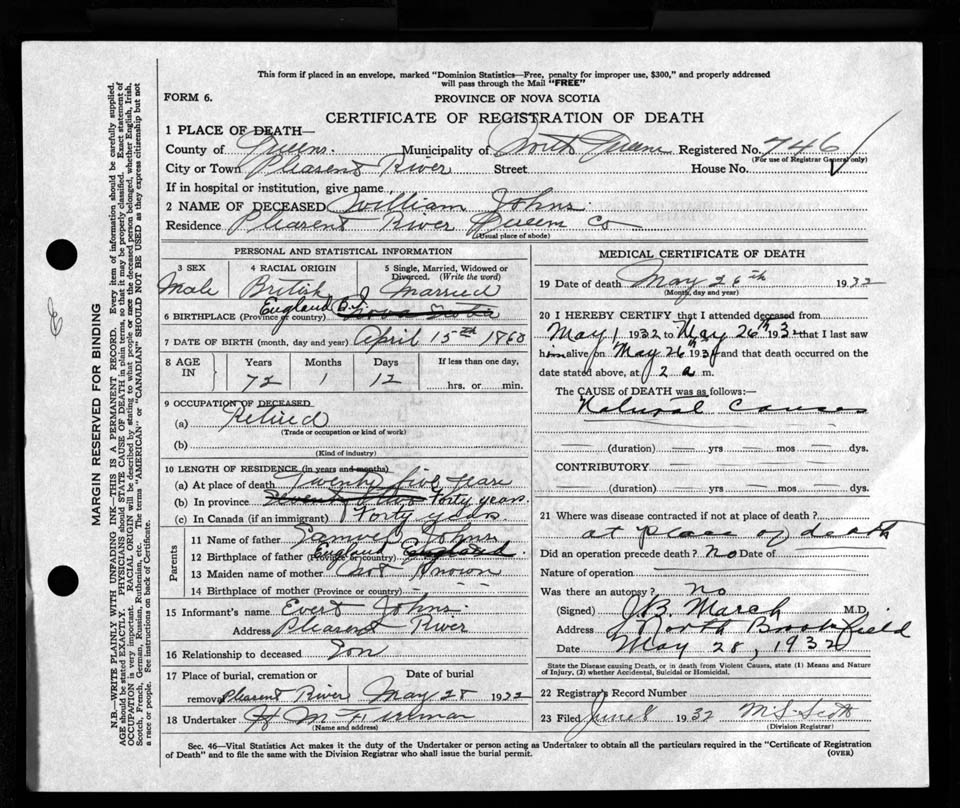 This form if placed in an envelope, marked "Dominion Statistics—Free, penalty for improper use, $300," and properly addressed
will pass through the Mail "FREE"
FORM 6.
PROVINCE OF NOVA SCOTIA
CERTIFICATE OF REGISTRATION OF DEATH
1 PLACE OF DEATH—
County of Queens. Municipality of North Queens Registered No. 746
(For use of Registrar General only)
City or Town Pleasent River Street House No.
If in hospital or institution, give name
2 NAME OF DECEASED William Johns
Residence Pleasent River Queen Co
(Usual place of abode)
PERSONAL AND STATISTICAL INFORMATION
3 SEX 4 RACIAL ORIGIN 5 Single, Married, Widowed or Divorced. (Write the word)
Male British Married
6 BIRTHPLACE (Province or country) England Nova Scotia
7 DATE OF BIRTH (month, day and year) April 15th 1860
8 AGE IN Years Months Days If less than one day,
72 1 12 hrs. or min.
9 OCCUPATION OF DECEASED
(a) Retired
(Trade or occupation or kind of work)
(b)
(Kind of industry)
10 LENGTH OF RESIDENCE (in years and months)
(a) At place of death Twenty five years
(b) In province Seventy two Forty years.
(c) In Canada (if an immigrant) Forty years.
Parents
11 Name of father Samuel Johns
12 Birthplace of father (Province or country) England England
13 Maiden name of mother Not Known
14 Birthplace of mother (Province or country)
15 Informant's name Evert Johns
Address Pleasent River
16 Relationship to deceased Son
17 Place of burial, cremation or removal Date of burial
Pleasent River May 28 1932
18 Undertaker H M
(Name and address)
MEDICAL CERTIFICATE OF DEATH
19 Date of death May 26th 1932
(Month, day and year)
20 I HEREBY CERTIFY that I attended deceased from
May 1 1932 to May 26th 193 that I last saw
h alive on May 26th 193 and that death occurred on
date stated above, at 2 a m.
The CAUSE of DEATH was as follows:—
Natural Causes
(duration) yrs mos dys.
CONTRIBUTORY
(duration) yrs mos dys.
21 Where was disease contracted if not at place of death?
at place of death
Did an operation precede death? no Date of
Nature of operation
Was there an autopsy? no
(Signed) J.B. March M.D.
Address North Brookfield
Date May 28, 1932
State the Disease causing Death, or in death from Violent Causes, state (1) Means and Nature
of Injury, (2) whether Accidental, Suicidal or Homicidal.
22 Registrar's Record Number
23 Filed June 8 1932 M S Scott
(Division Registrar)
Sec. 46—Vital Statistics Act makes it the duty of the Undertaker or person acting as Undertaker to obtain all the particulars required in the "Certificate of Registration
of Death" and to file the same with the Division Registrar who shall issue the burial permit.
(OVER)
MARGIN RESERVED FOR BINDING
N.B.—WRITE PLAINLY WITH UNFADING INK—THIS IS A PERMANENT RECORD. Every item of information should be carefully supplied.
AGE should be stated EXACTLY. PHYSICIANS should STATE CAUSE OF DEATH in plain terms, so that it may be properly classified. Exact statement of
OCCUPATION is very important. RACIAL ORIGIN will be described by stating to what people or race the deceased person belonged, whether English, Irish,
Scotch, French, German, Russian, Ruthenian, etc. The terms "AMERICAN" or "CANADIAN" SHOULD NOT BE USED as they express citizenship but not
a race or people. See instructions on back of Certificate.